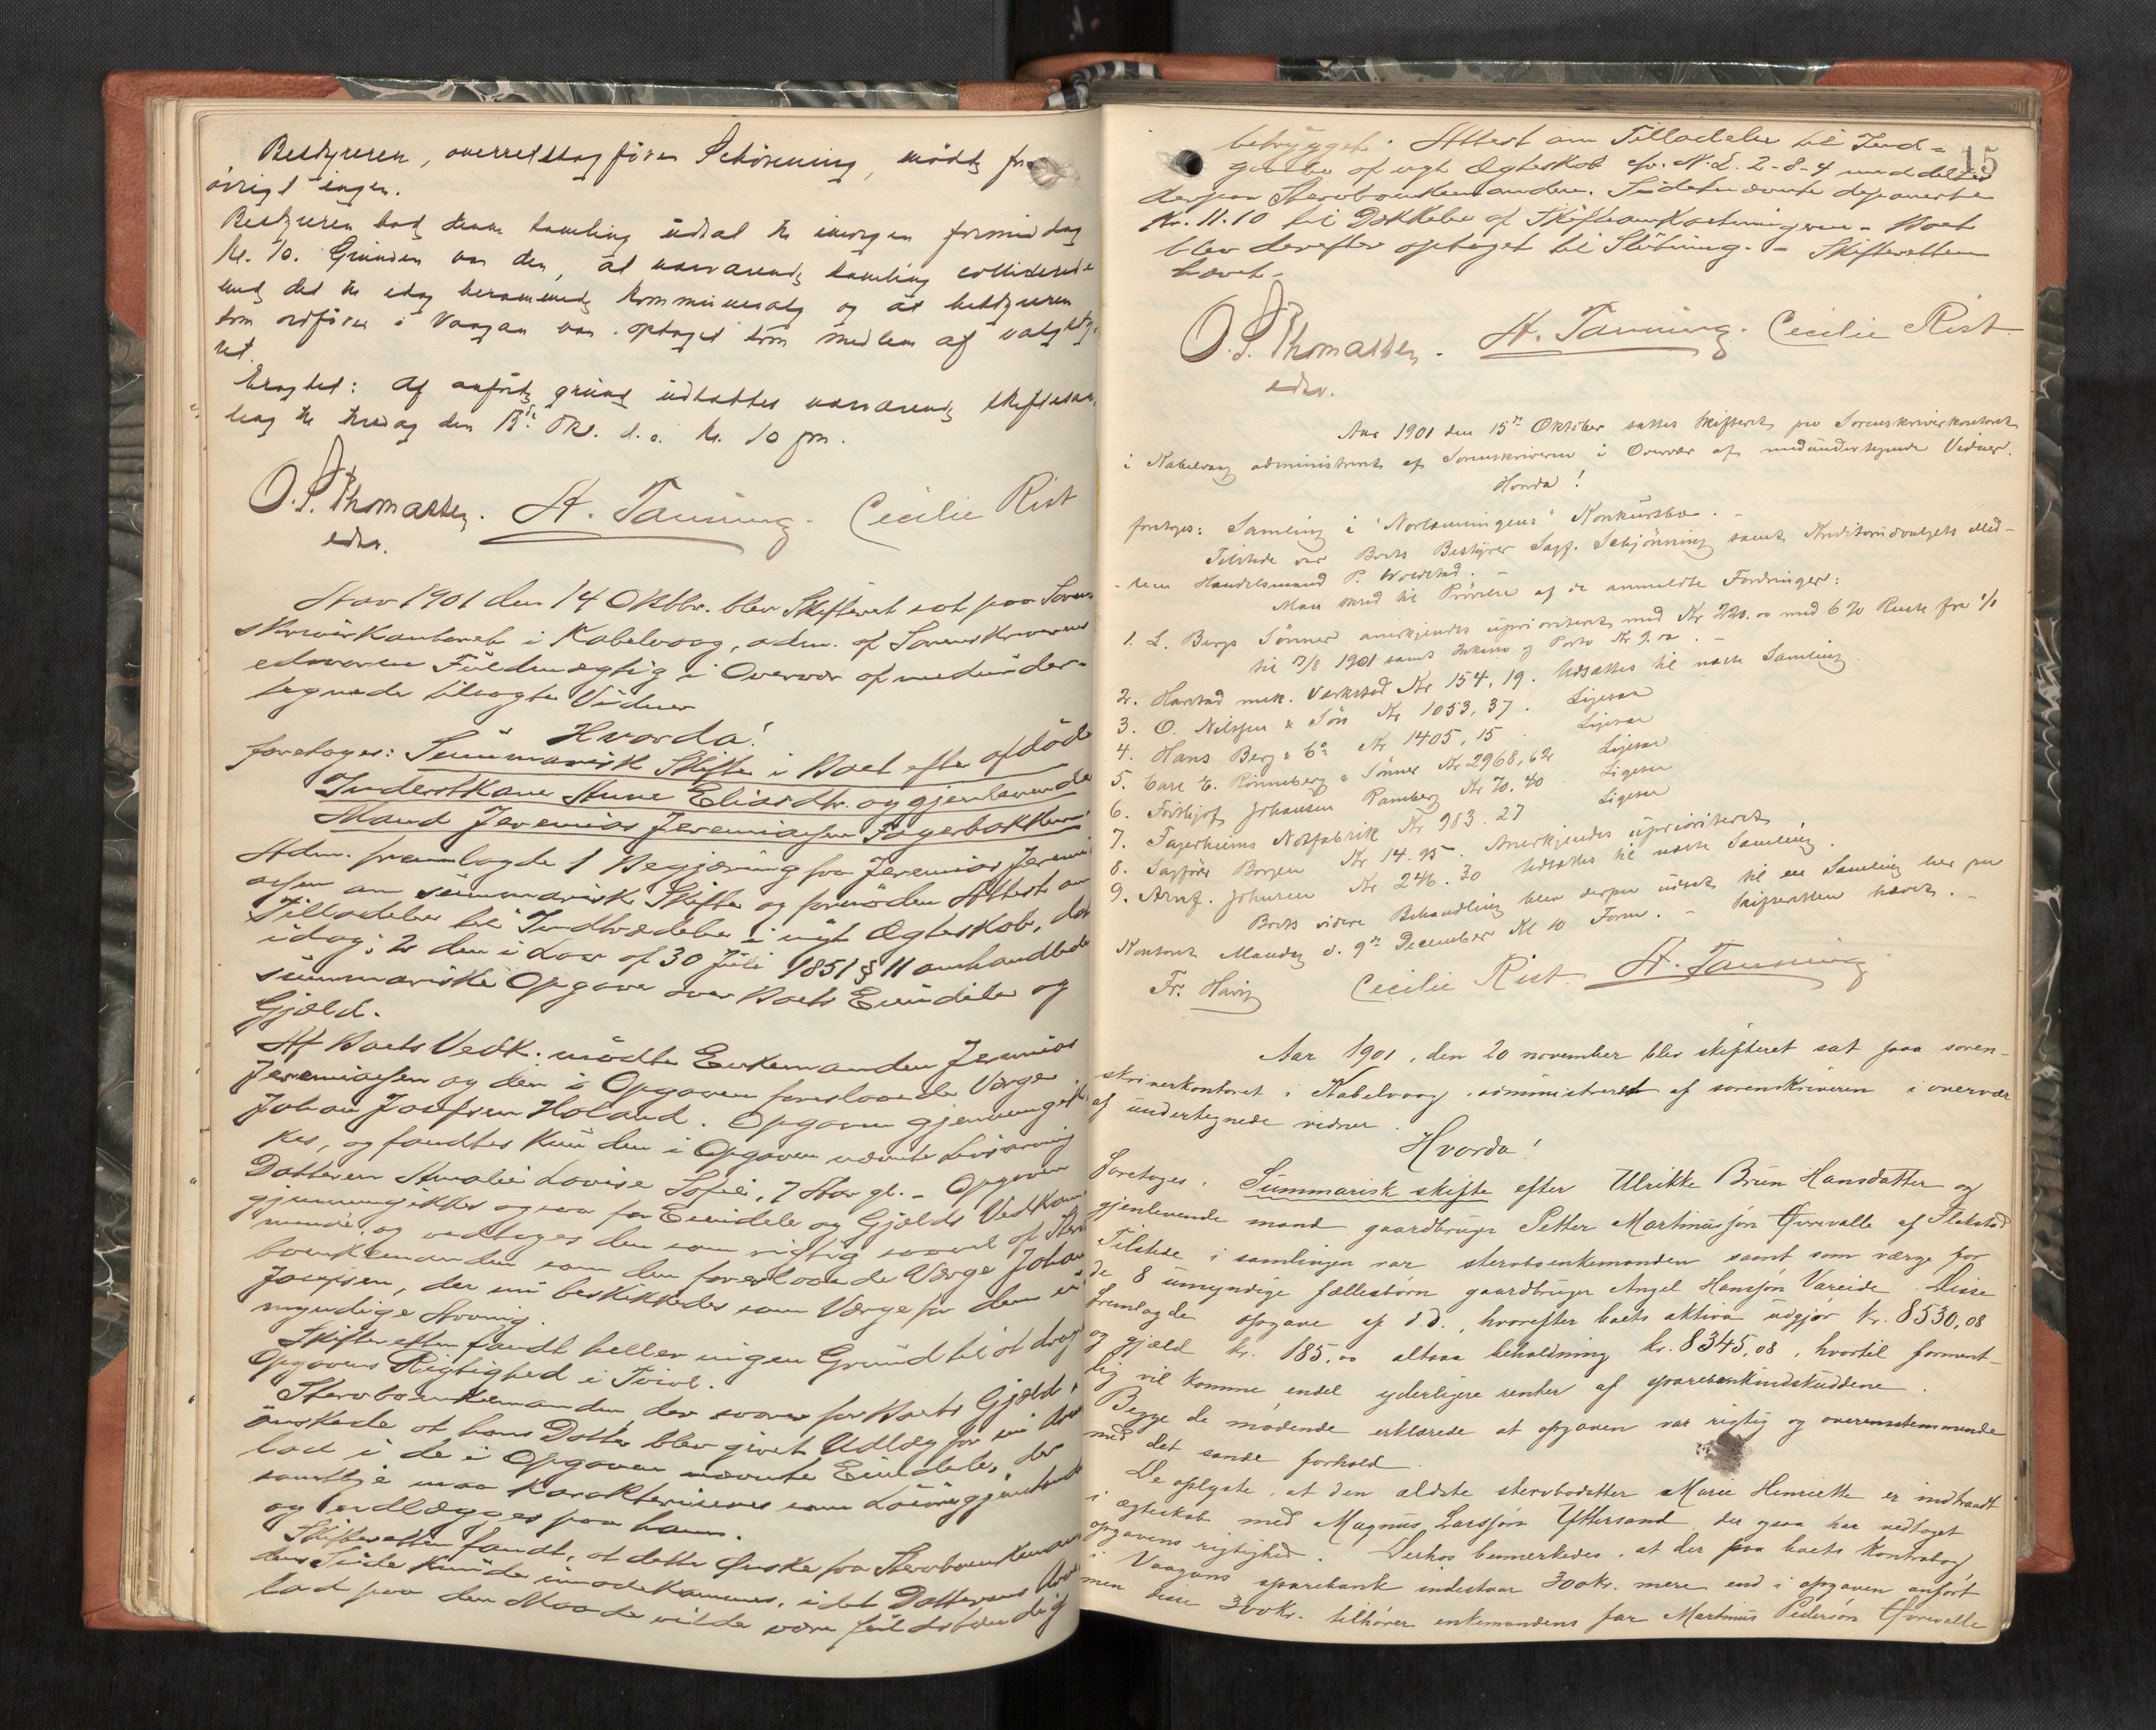 Bestyreren, overretssagfører Schjønning, mødte for
øvrigt ingen.
Bestyreren bad denne samling udsat til imorgen formiddag
kl. 10. Grunden var den, at nærværende samling colliderede
med det til idag berammede kommunevalg og at bestyreren
som ordfører i Vaagan var optaget som medlem af valgsty-
ret.
Eragtet: Af anførte grund udsattes nærværende skiftesam-
ling til tirsdag den 15de Okt. d. a. kl. 10 fm.
O. S. Thomassen. A. Tanning. Cecilie Rist
edsv.
Aar 1901 den 14 Oktbr. blev Skifteret sat paa Soren-
skriverkontoret i Kabelvaag, adm. af Sorenskriverens
edsvorne Fuldmægtig i Overvær af medunder-
tegnede tilsagte Vidner
Hvorda!
foretoges: Summarisk Skifte i Boet efter afdøde
Inderstkone Anne Eliasdtr. og gjenlevende
Mand Jeremias Jeremiassen Fagerbakken
Adm. fremlagde 1 Begjæring fra Jeremias Jeremi-
assen om summarisk Skifte og fornøden Attest om
Tilladelse til Indtrædelse i nyt Ægteskab, dat.
idag; 2 den i Lov af 30 Juli 1851 § 11 omhandlede
summariske Opgave over Boets Eiendele og
Gjæld.
Af Boets Vedk. mødte Enkemanden Jeremias
Jeremiassen og den i Opgaven foreslaaede Værge
Johan Josefsen Holand. Opgaven gjennemgik-
kes, og fandtes kun den i Opgaven nævnte Livsarving
Datteren Amalie Lovise Sofie, 7 Aar gl. - Opgaven
gjennemgikkes ogsaa for Eiendele og Gjælds Vedkom-
mende og vedtoges den som rigtig saavel af Sterv-
boenkemanden som den foreslaaede Værge Johan
Josefsen, der nu beskikkedes som Værge for den u-
myndige Arving.
Skifteretten fandt heller ingen Grund til at drage
Opgavens Rigtighed i Tvivl.
Stervboenkemanden, der svarer for Boets Gjæld,
ønskede at hans Datter blev givet Udlæg for sin Arve-
lod i de i Opgaven nævnte Eiendele, der
samtlige maa karakteriseres som Løsøregjenstande
og udlægges paa ham.
Skifteretten fandt, at dette Ønske fra Stervboenkeman-
dens Side kunde imødekommes, idet Datterens Arve-
lod paa den Maade vilde være fuldstændig
15
betrygget. Attest om Tilladelse til Ind-
gaaelse af nyt Ægteskab efr. N. L. 2-8-4 meddeltes
derpaa Stervboenkemanden. Sidstnævnte deponerte
Kr. 11.10 til Dækkelse af Skifteomkostningerne. - Boet
blev derefter optaget til Slutning. - Skifteretten
hævet. -
O. S. Thomassen. A. Tanning. Cecilie Rist.
edsv.
Aar 1901 den 15de Oktober sattes Skifteret paa Sorenskriverkontoret
i Kabelvaag administreret af Sorenskriveren i Overvær af medundertegnede Vidner.
Hvorda!
foretoges: Samling i "Norlænningens" Konkursbo. -
Tilstede var Boets Bestyrer Sagf. Schjønning samt Kreditorudvalgets Med-
- lem Handelsmand P. Wolstad. -
Man skred til Prøvelse af de anmeldte Fordringer:
1. L. Bergs Sønner anerkjendes uprioriteret med Kr 228.00 med 6 % Rente fra 1/1
til 17/8 1901 samt Inkasso og Porto Kr 9.00. -
2. Harstad mek. Værksted Kr 154,19. Udsættes til næste Samling
3. O. Nilssen & Søn Kr 1053,37. Ligesaa
4. Hans Berg & Co Kr 1405,15 Ligesaa
5. Carl E. Rønneberg & Sønner Kr 2968,62 Ligesaa
6. Frithjof Johansen Ramberg Kr 70.40 Ligesaa
7. Fagerheims Notfabrik Kr 983.27 Ligesaa
8. Sagfører Borgen Kr 14.95. Anerkjendes uprioriteret
9. Arnf. Johnsen Kr 246.30 Udsættes til næste Samling.
Boets videre Behandling blev derpaa udsat til en Samling her paa
Kontoret Mandag d. 9de December Kl 10 Form. - Skifteretten hævet. -
Fr. Cecilie Rist. A. Tanning
Aar 1901, den 20 november blev skifteret sat paa soren-
skriverkontoret i Kabelvaag, administreret af sorenskriveren i overvær
af undertegnede vidner.
Hvorda!
Foretoges. Summarisk skifte efter Ulrikke Brun Hansdatter og
gjenlevende mand gaardbruger Petter Martinussøn Øvrevalle af Flakstad
Tilstede i samlingen var stervboenkemanden samt som værge for
de 8 umyndige fællesbørn gaardbruger Angel Hanssøn Vareide. Disse
fremlagde opgave af d.d., hvorefter boets aktiva udgjør kr. 8530,08
og gjæld kr. 185,00 altsaa beholdning kr. 8345,08, hvortil forment-
lig vil komme endel yderligere renter af sparebankindskuddene.
Begge de mødende erklærede at opgaven var rigtig og overensstemmende
med det sande forhold.
De oplyste, at den ældste stervbodatter Marie Henriette er indtraadt
i ægteskab med Magnus Larssøn Yttersand, der ogsaa har vedtaget
opgavens rigtighed. Derhos bemerkedes, at der paa boets kontrabog
i Vaagans sparebank indestaar 300kr. mere end i opgaven anført
men disse 300kr. tilhører enkemandens far Martinus Pedersøn Øvrevalle